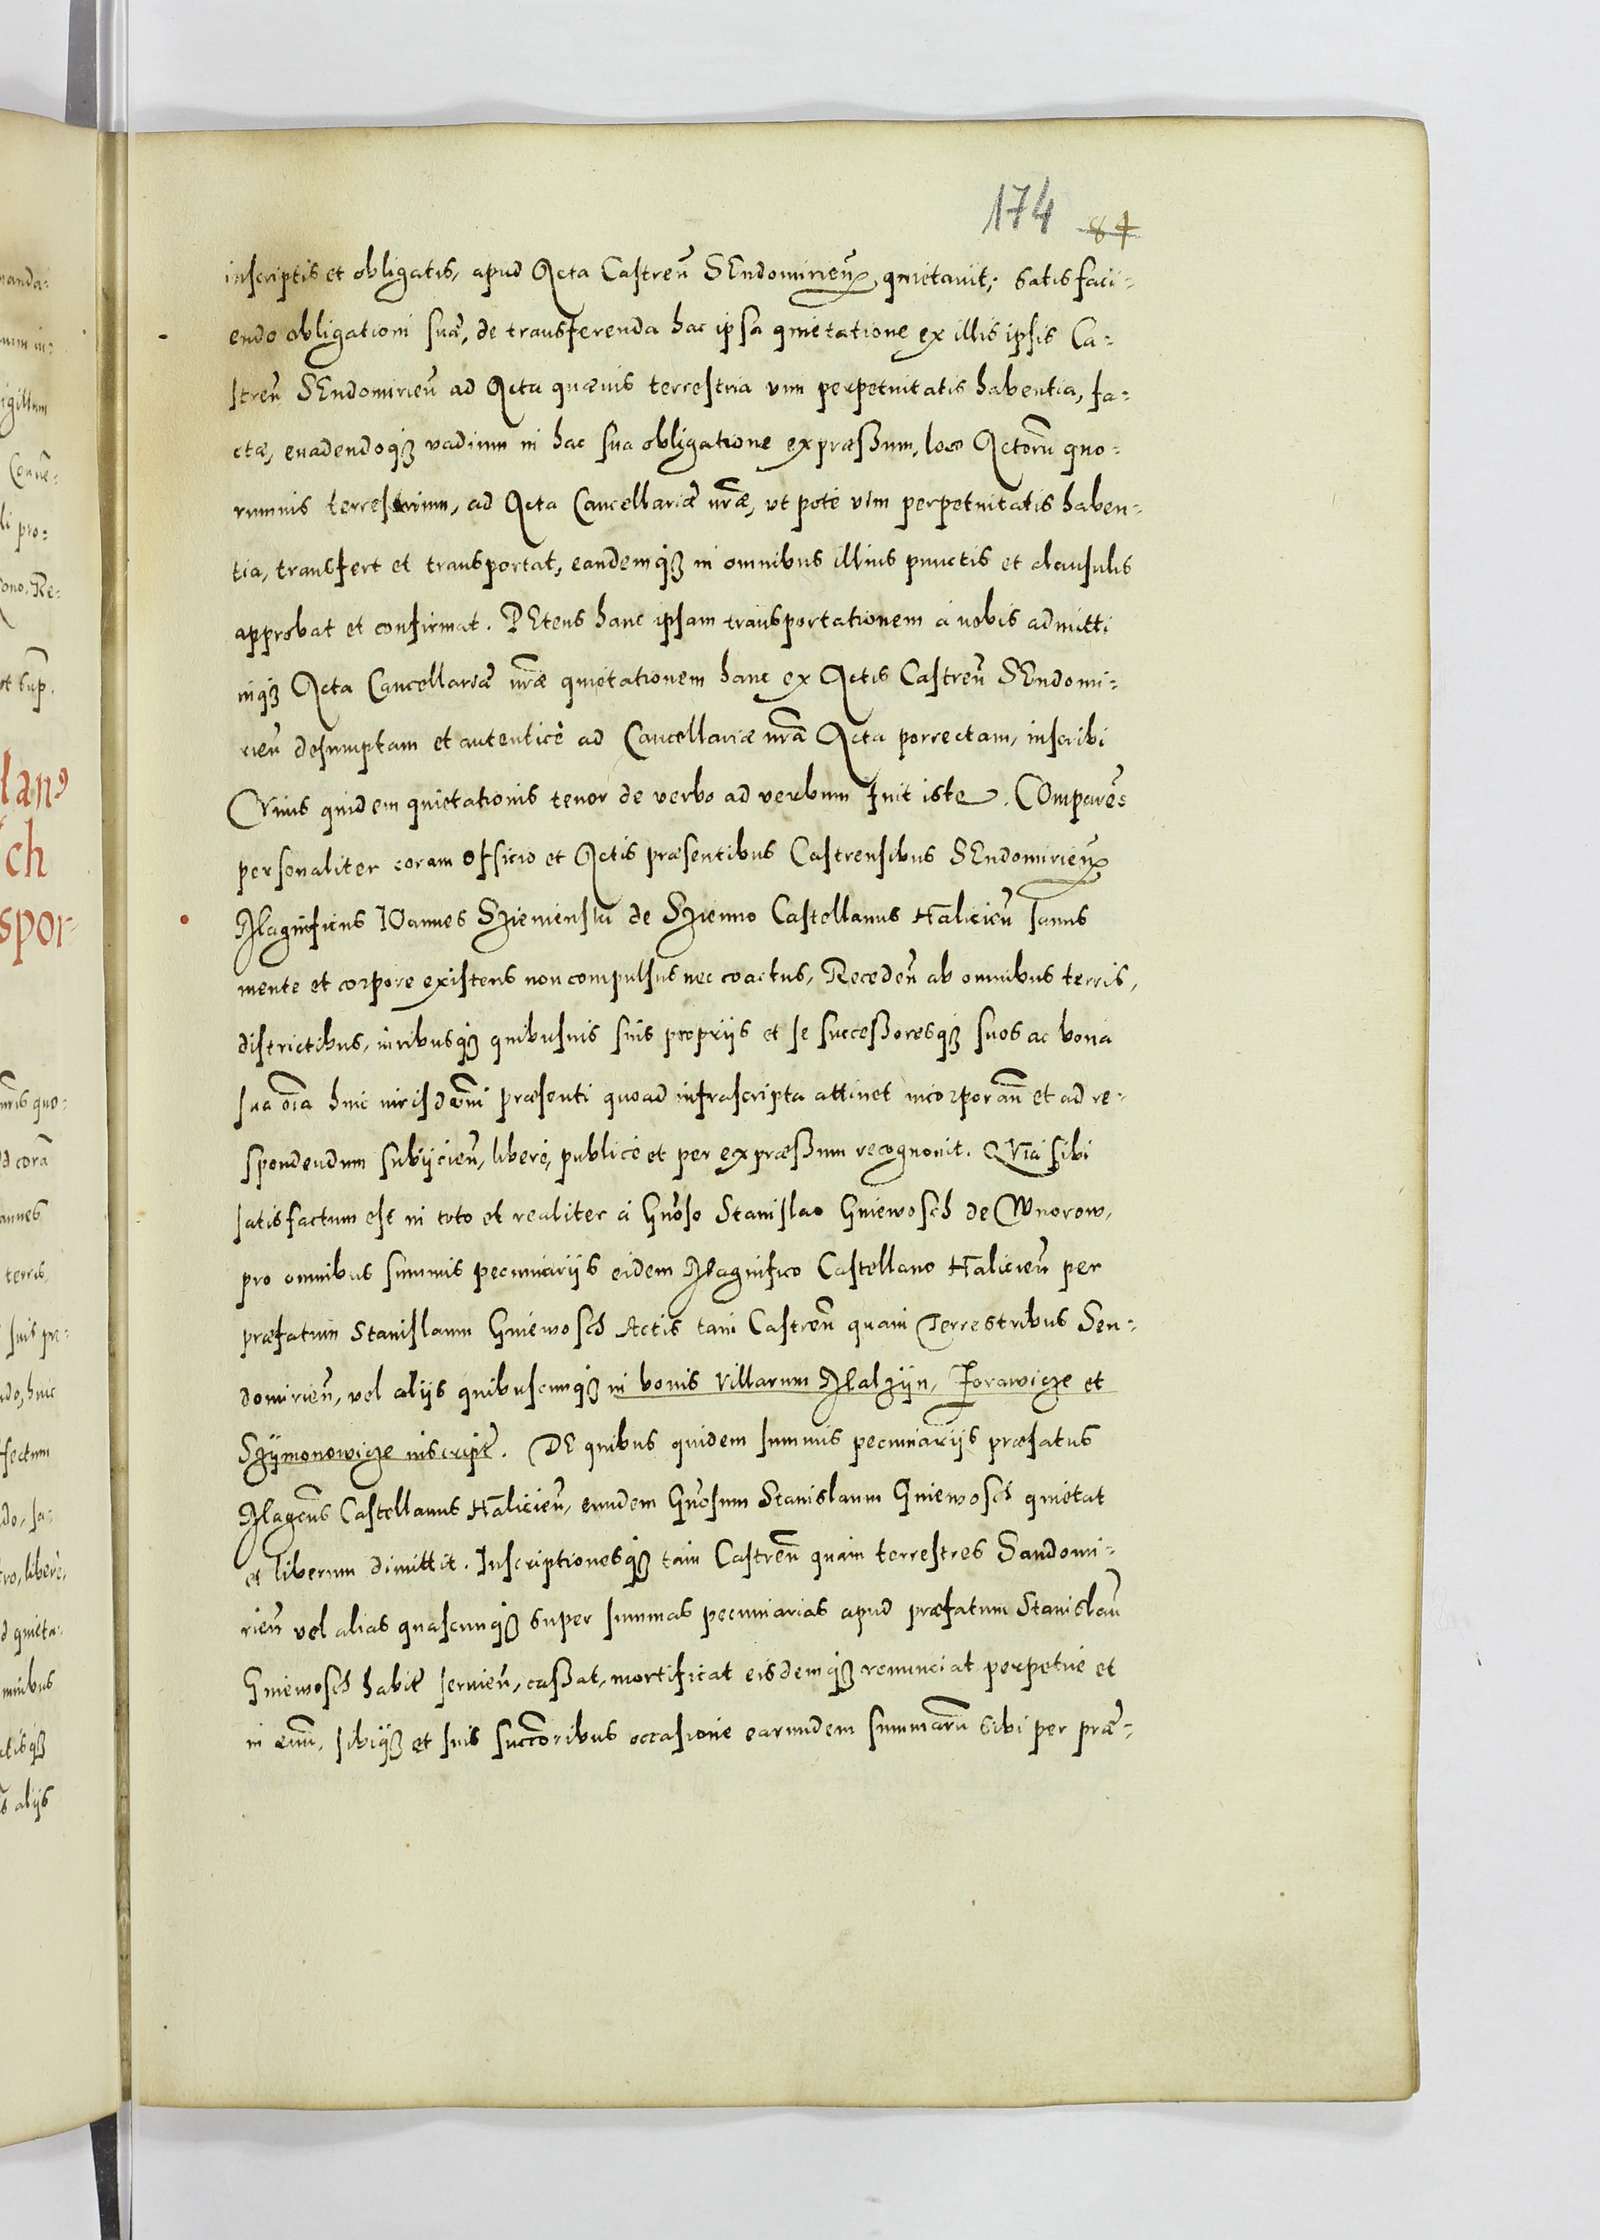 174 84
inscriptis et obligatis, apud Acta Castreñ SEndomirieñ quietauit, satisfaci-
endo obligationi suæ, de transferenda hac ipsa quietatione ex illis ipsis Ca-
streñ SEndomirieñ ad Acta quæuis terrestria vim perpetuitatis habentia, fa-
ctæ, euadendoq3 vadium in hac sua obligatione expræssum, loco Actorũ quo-
rumuis terrestrium, ad Acta Cancellariæ nr̃æ, ut poté vim perpetuitatis haben-
tia, transfert et transportat, eandemq3 in omnibus illius punctis et clausulis
approbat et confirmat. PEtens hanc ipsam transportationem á nobis admitti
inq3 Acta Cancellariæ nr̃æ quietationem hanc ex Actis Castreñ SEndomi-
rieñ desumptam et autenticè ad Cancellariæ nr̃æ Acta porrectam, inscribi
CVius quidem quietationis tenor de verbo ad verbum fuit iste. COmparẽs
personaliter coram officio et Actis præsentibus Castrensibus SEndomirieñ
Magnificus IOannes Sziemenski de Szienno Castellanus Halicieñ sanus
mente et corpore existens non compulsus nec coactus, Recedeñ ab omnibus terris,
districtibus, iuribusq3 quibusuis suis proprijs et se successoresq3 suos ac bona
sua oĩa huic iurisdc̃oni præsenti quoad infrascripta attinet incorporañ et ad re-
spondendum subijcieñ, liberé, publicé et per expræssum recognouit. QVia sibi
satisfactum est in toto et realiter á Gñoso Stanislao Gniewosch de Wnorow,
pro omnibus summis pecuniarijs eidem Magnifico Castellano Halicieñ per
præfatum Stanislaum Gniewosch Actis tam Castreñ quam Terrestribus Sen-
domirieñ, vel alijs quibuscunq3 in bonis villarum Malzijn, Jorawicze et
Szijmonowicze inscript̃. DE quibus quidem summis pecuniarijs præfatus
Magcũs Castellanus Halicieñ, eundem Gñosum Stanislaum Gniewosch quietat
et liberum dimittit. Inscriptionesq3 tam Castreñ quam terrestres Sandomi-
rieñ vel alias quascunq3 super summas pecuniarias apud præfatum Stanislaũ
Gniewosch habit̃ seruieñ, cassat, mortificat eisdemq3 renunciat perpetué et
in æuũ, sibiq3 et suis succc̃oribus occasione earundem summarũ sibi per præ-